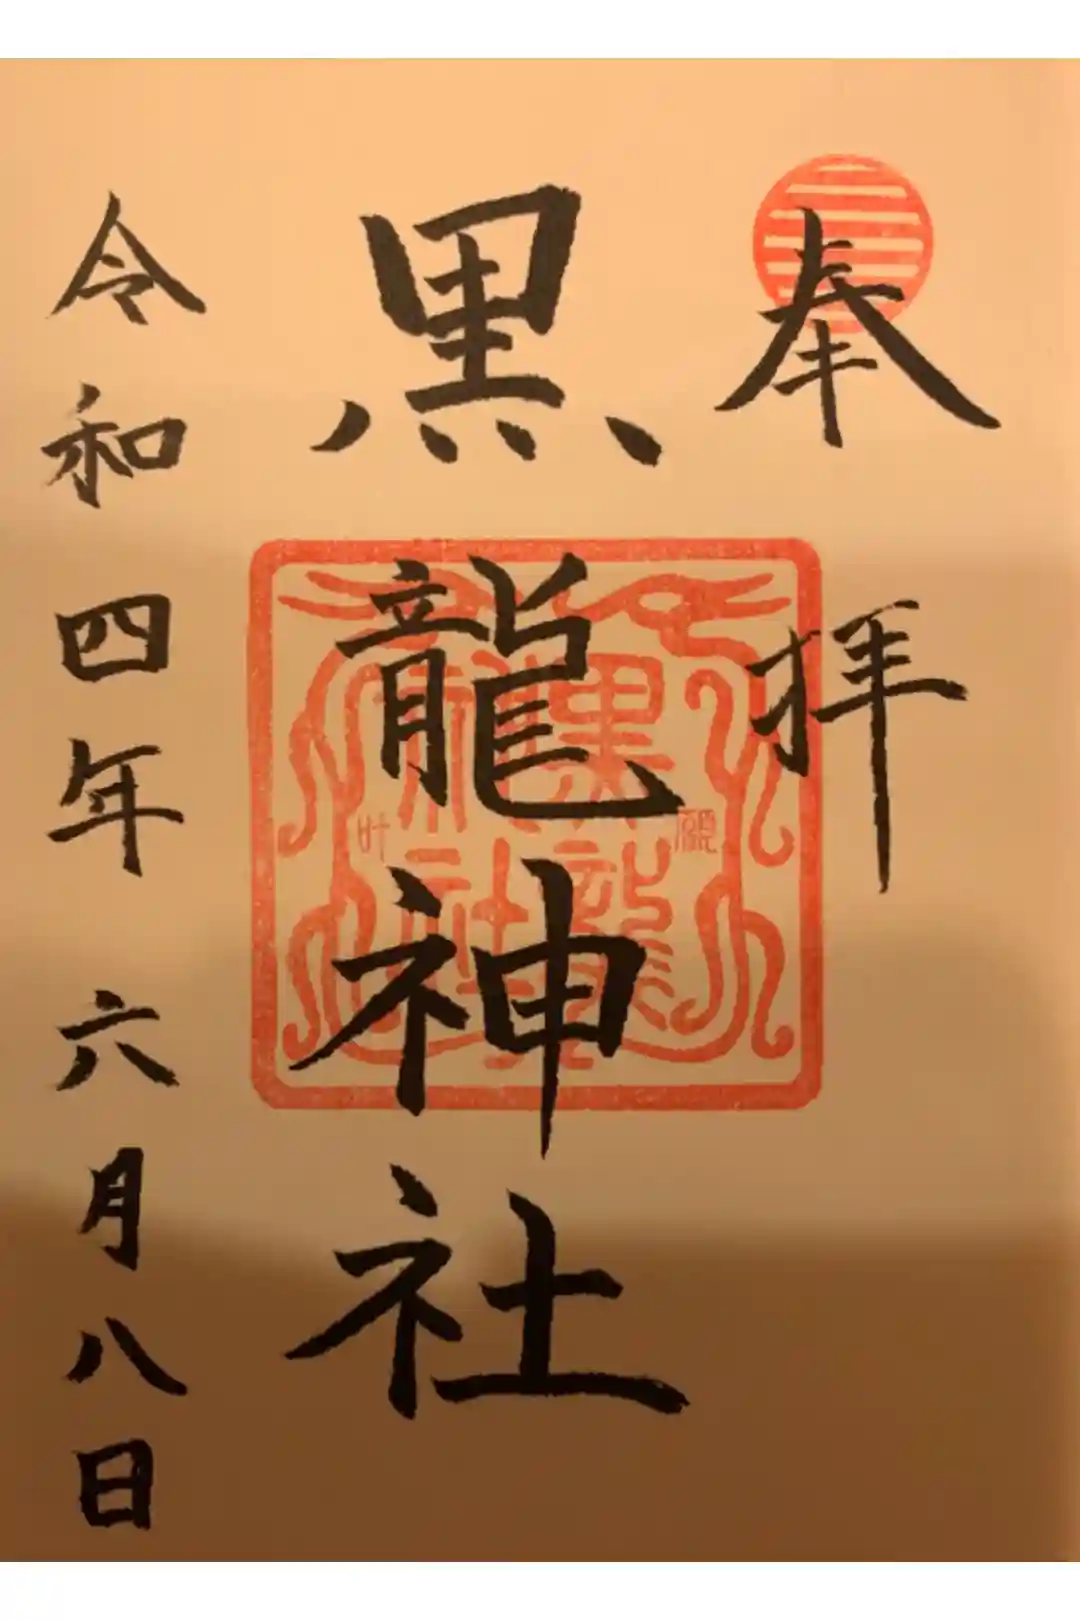 奉拝
黒龍神社
令和四年六月八日
黒龍
神社
願
叶